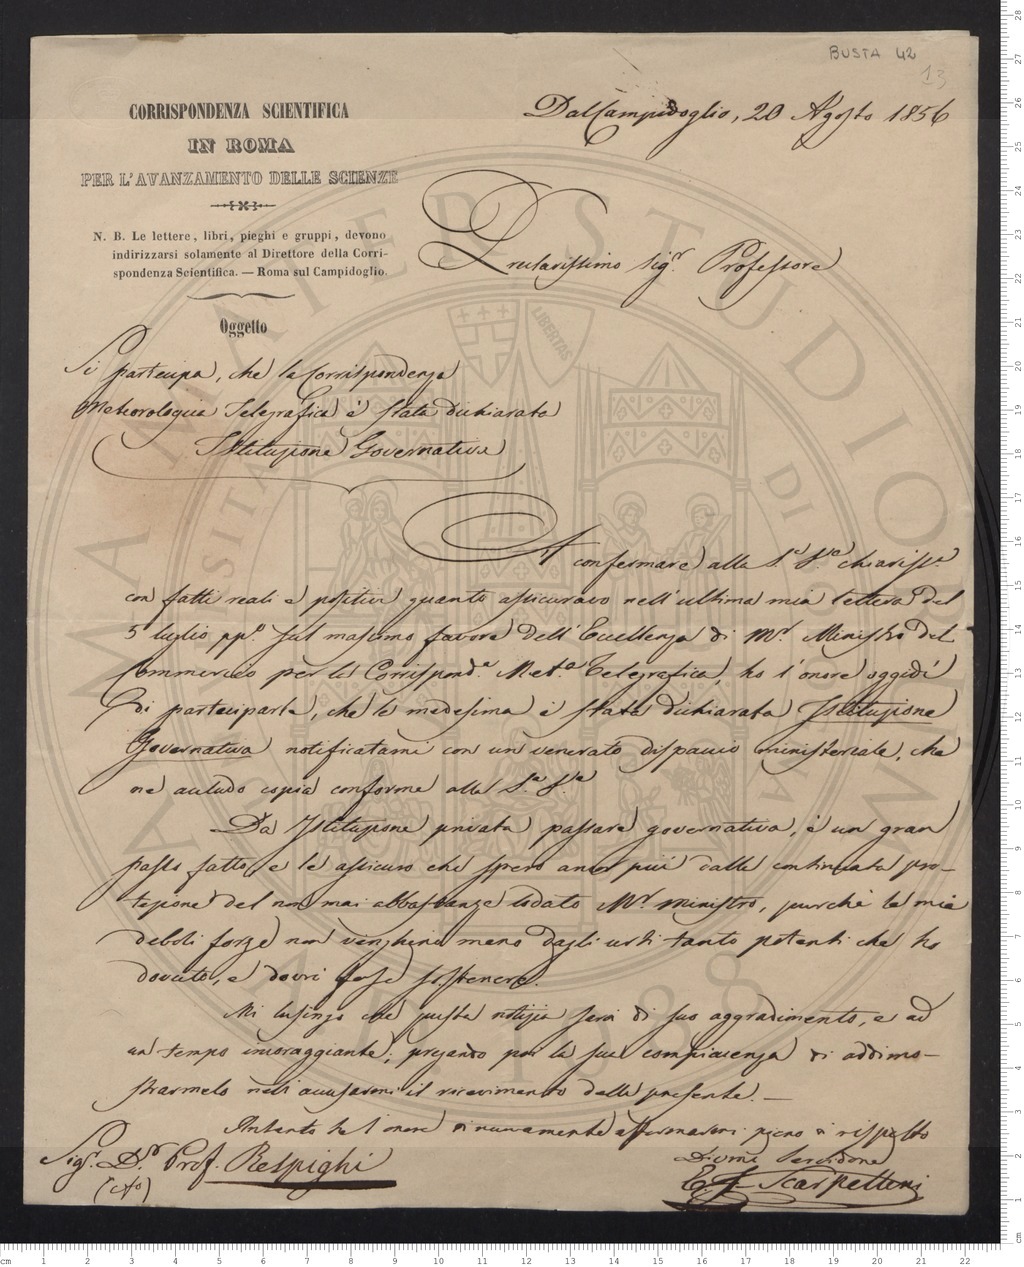 BUSTA 42
13
CORRISPONDENZA SCIENTIFICA
IN ROMA
PER L'AVANZAMENTO DELLE SCIENZE
N. B. Le lettere, libri, pieghi e gruppi, devono
indirizzarsi solamente al Direttore della Corri-
spondenza Scientifica. — Roma sul Campidoglio.
Oggetto
Dal Campidoglio, 20 Agosto 1856
Preclarissimo Sigr. Professore
Si partecipa, che la Corrispondenza
Meteorologica Telegrafica è stata dichiarata
Istituzione Governativa
A confermare alla Sa. Va. chiarissa
con fatti reali e positivi quanto assicuravo nell'ultima mia lettera del
5 luglio pp°. sul massimo favore dell'Eccellenza di Mr. Ministro del
Commercio per la Corrispond.a Met.a Telegrafica, ho l'onore oggidì
di parteciparle, che la medesima è stata dichiarata Istituzione
Governativa notificatami con un venerato dispaccio ministeriale, che
ne accludo copia conforme alla Sa. Va.
Da Istituzione privata passare governativa, è un gran
passo fatto, e le assicuro che spero ancor più dalla continuata pro-
tezione del non mai abbastanza lodato Mr. Ministro, purchè le mie
deboli forze non venghino meno dagli urti tanto potenti che ho
dovuto, e dovrò forse sostenere.
Mi lusingo che questa notizia sarà di suo aggradimento, e ad
un tempo incoraggiante; pregando poi la sua compiacenza di addimo-
strarmelo nell'accusarmi il ricevimento della presente. —
Intanto ho l'onore di nuovamente affermarmi pieno di rispetto
Sigr. Dr. Prof. Respighi
Devmo Servidore
E. F. Scarpellini
ALMA MATER STUDIORUM
A.D. 1088
LIBERTAS